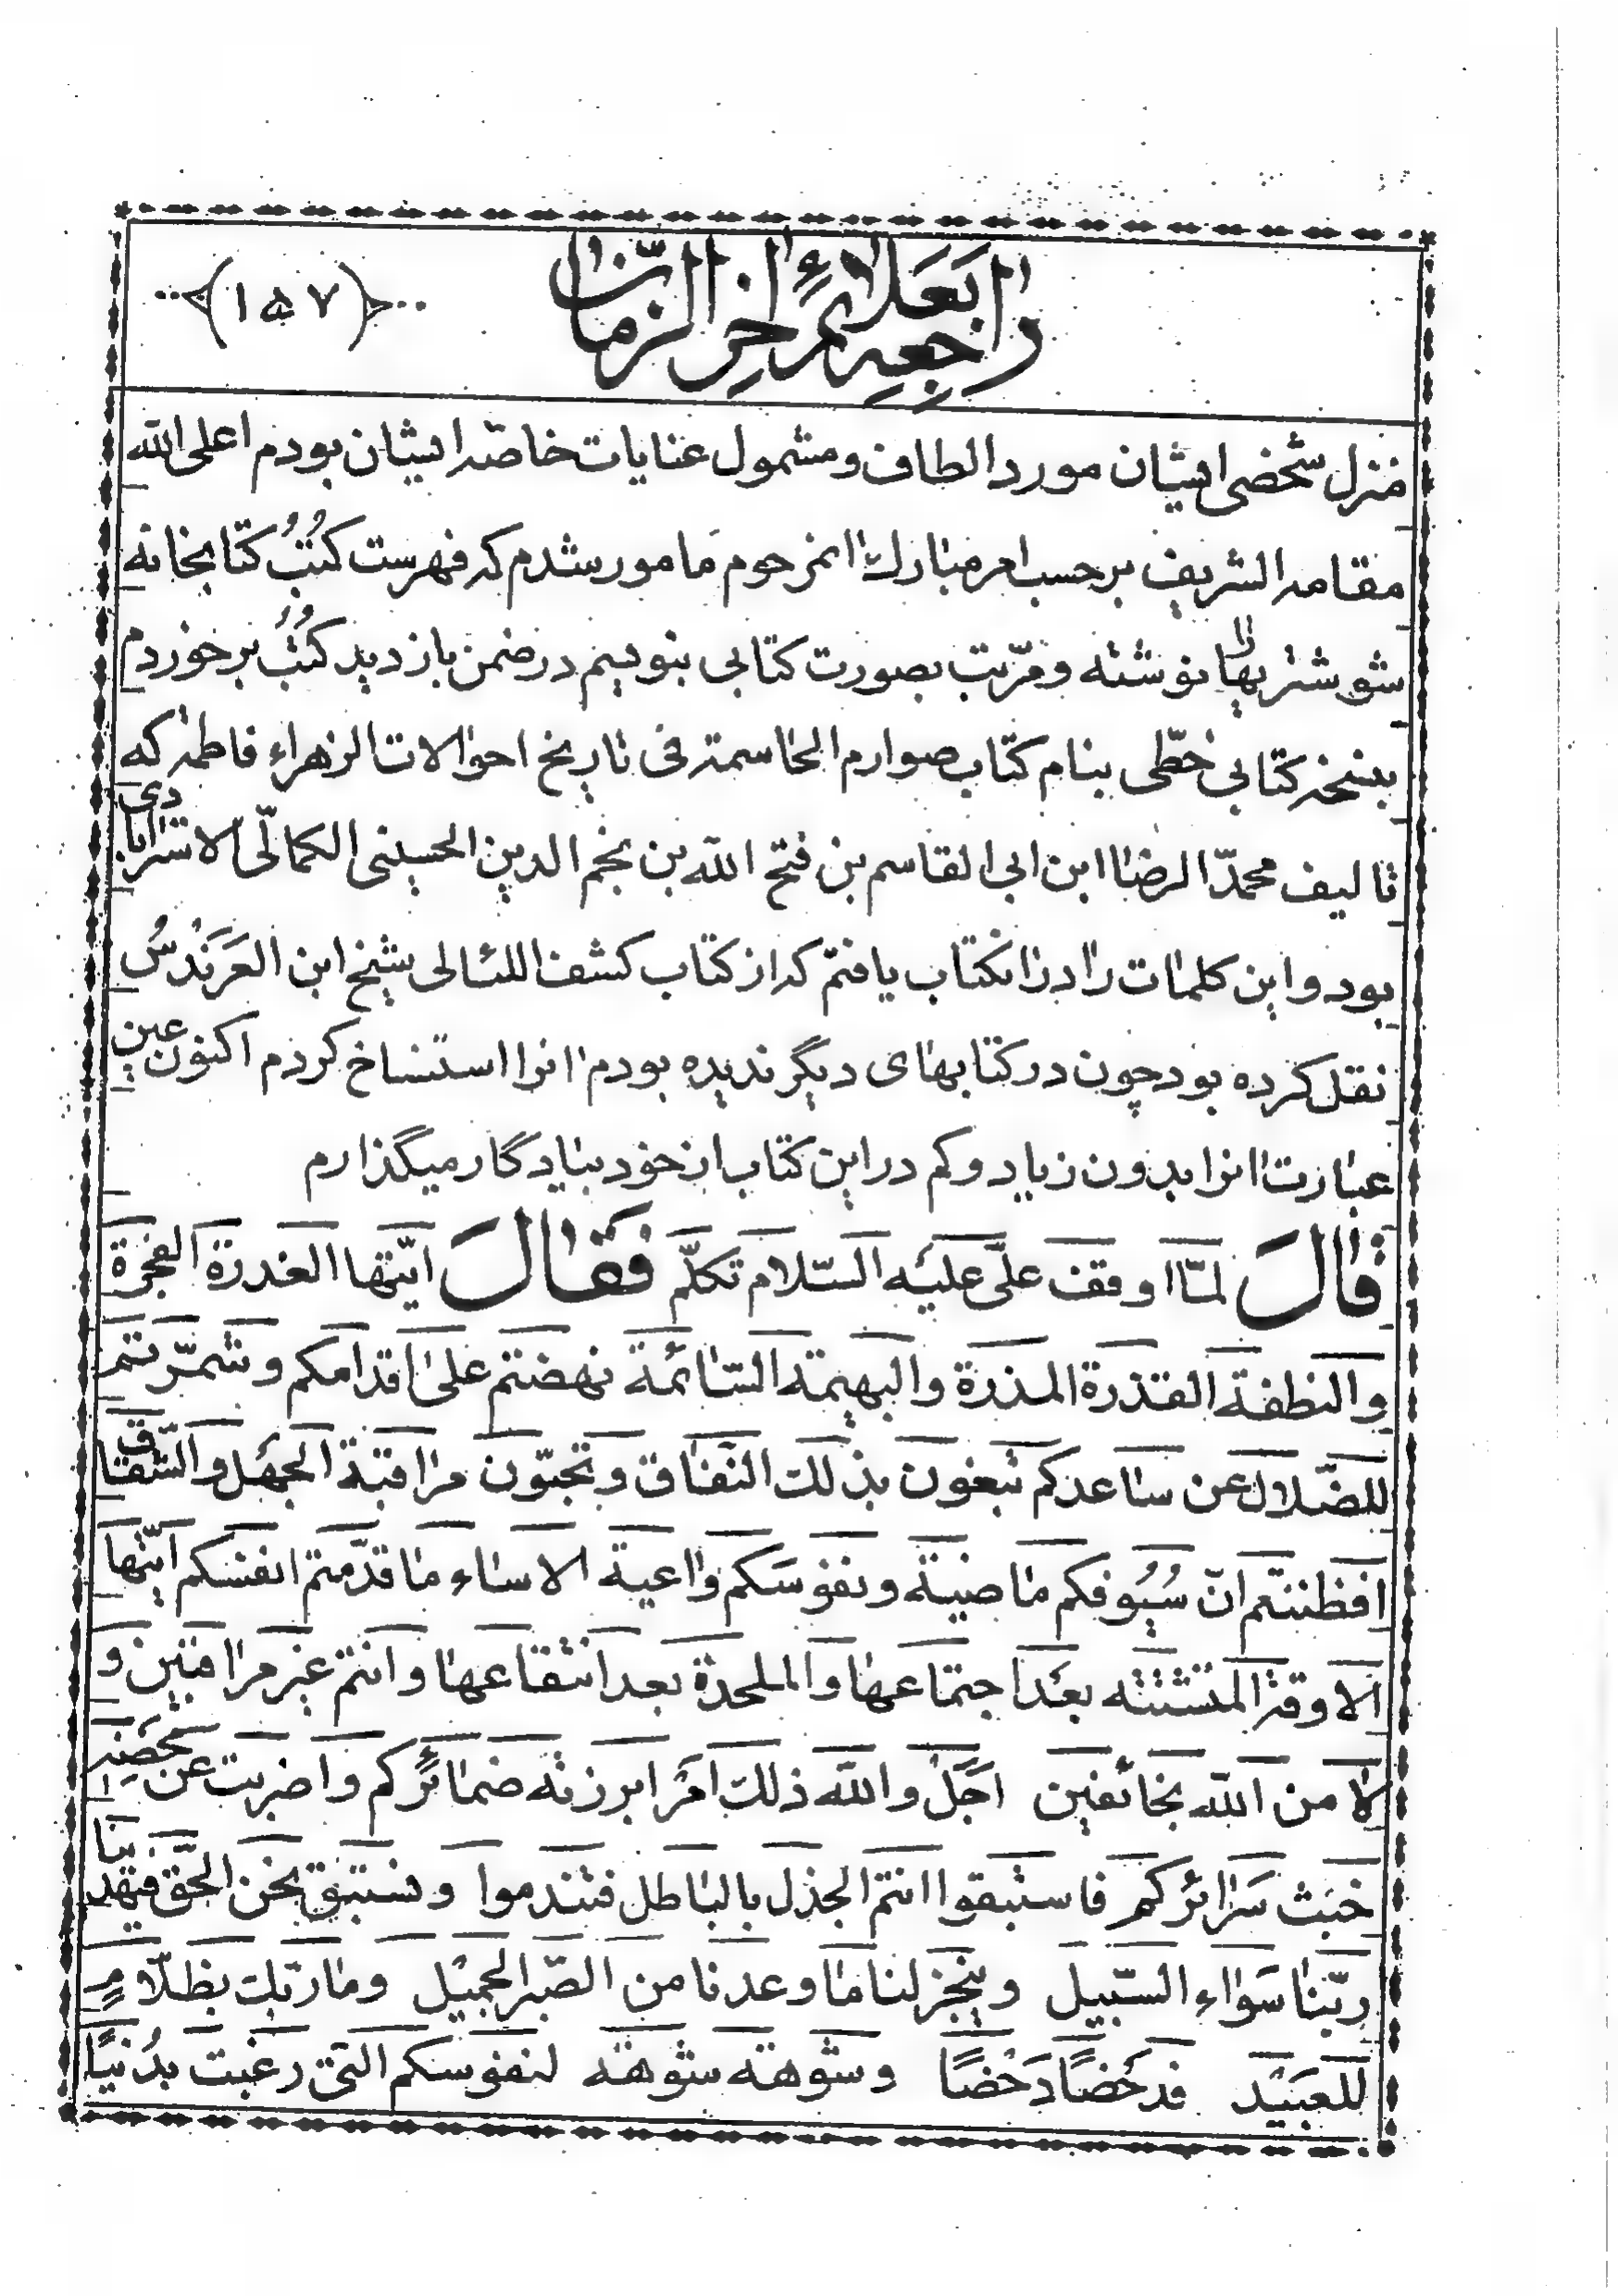 راجعه بعلائم اخر الزمان
(۱۵۷)
منزل شخصی ایشان مورد الطاف و مشمول عنایات خاصّه ایشان بودم اعلی الله
مقامه الشریف بر حسب امر مبارک انمرحوم مامور شدم که فهرست کُتُبُ کتابخانه
شوشتریها را نوشته و مرّتب بصورت کتابی بنویسم در ضمن بازدید کُتُب برخوردم
بنسخه کتابی خطّی بنام کتاب صوارم الحاسمة فی تاریخ احوالات الزهراء فاطمه که
تالیف محمّد الرضا ابن ابی القاسم بن فتح الله بن نجم الدین الحسینی الکمالّی الاسترابادی
بود و این کلمات را در انکتاب یافتم که از کتاب کشف اللئالی شیخ ابن العَرَنْدسُ
نقل کرده بود چون در کتابهای دیگر ندیده بودم انرا استنساخ کردم اکنون عین
عبارت انرا بدون زیاد و کم در این کتاب از خود بیادگار میگذارم
قالَ لمّا اوقف علّی علیَه السّلام تکلّم فَقالَ ایّتها الغدرة الفجرة
والنطفة القذرة المذرة والبهیمة السّائمة نهضتم علی اقدامکم وشمّرتم
للضّلال عن ساعدکم تبغون بذلک النّفاق وتحبّون مراقبة الجهل والشّقاق
افظننتم انّ سُیُوفکم ماضیة ونفوسَکم واعیة الاساء ما قدّمتم انفسکم ایّتها
الاوقة المتشتته بعَد اجتماعها والملحدة بعد انتفاعها وانتم غیر مراقبین و
لا من الله بخائفین اَجَلْ والله ذلک امَر ابرزته ضمائرکم واضربت عن مَحضِه
خبث سَرائرکم فاستبقوا انتم الجذل بالباطل فتندموا ونستبق نحن الحّق فیهدینا
ربّنا سَواء السّبیل وینجز لنا ما وعدنا من الصّبر الجمیْل وما ربّک بظلّامٍ
للعبَیْد فدَحْضاً دَحْضاً وشوهة شوهة لنفوسکم التی رغبت بدُنیاً